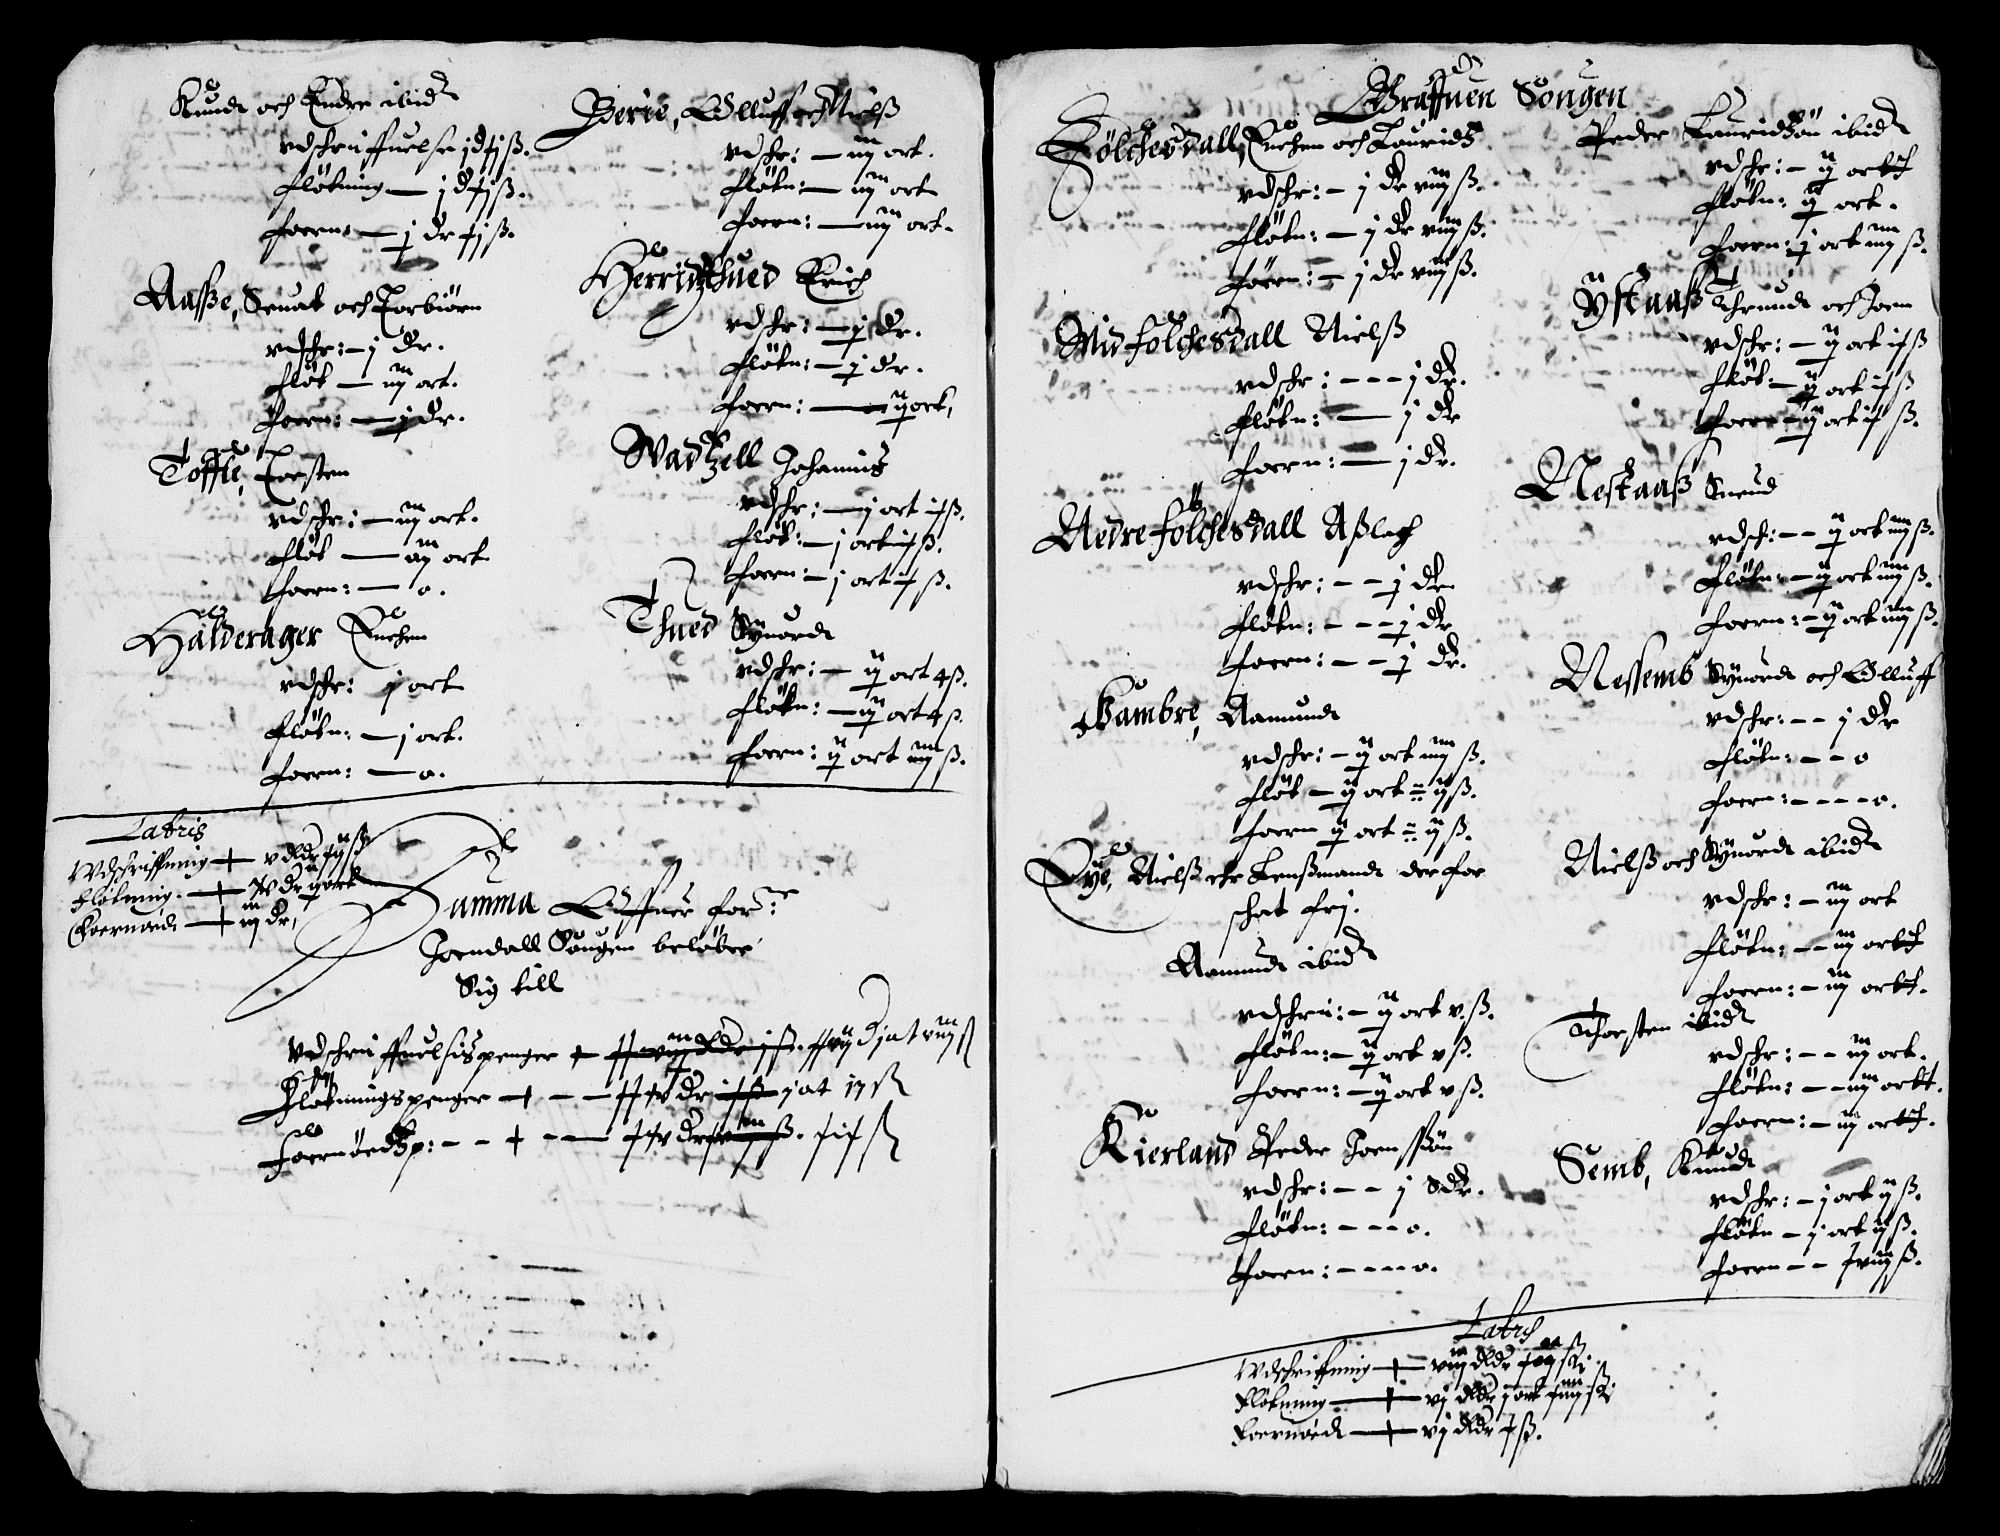 Knud och Endre ibid
vdschriffuelse j d fj ß.
fløtning — j d fj ß.
foern: — j dr fj ß.
Aasße, Snuat och Torbiørn
vdschr: — j dr.
fløt — iij ort.
foern: — j dr.
Toffte, Torsten
vdschr: — iij ort.
fløt — iij ort
foern: — o.
Halderager Enchen
vdschr: j ort
fløtn: — j ort.
foern: — o.
Berie, Olluff och Nielß
vdschr: — iij ort.
fløtn: — iij ort
foern: — iij ort.
Herridzthued Erich
vdschr: — j dr.
fløtn: — j dr.
foern: — ij ort,
Wadzell Johannis
vdschr: — j ort if ß.
fløt: — j ort if ß.
foern: — j ort if ß.
Thued Syuord
vdschr: — ij ort 4 ß.
fløtn: — ij ort 4 ß.
foern: ij ort iiij ß.
Lateris
Vdschriffning — v dldr fij ß
Fløtning. — iv dr ij ort
Foernøed — iij dr,
Summa Offuer for:ne
Joendall Songen beløber
Sig till
Vdschriffuelsispenger
Fløtningspenger — j at 17 ß
Foernøedzp:
Graffuen Songen
Følchesdall, Enchen och Louridz
vdschr: — j dr viij ß.
fløtn: — j dr viij ß.
føern: — j dr viij ß.
Mid følchesdall Nielß
vdschr: — — — j dr.
fløtn: — j dr
foern: — j dr.
Nedre følchesdall Aßlach
vdschr: — — j dr
fløtn: — — — j dr
foern: — — j dr.
Gambre, Aamund
vdschr: — ij ort iiij ß.
fløt — ij ort iiij ß.
foern ij ort iiij ß.
Sye, Nielß ehr Lenßmand derfor
schat frj.
Aamund ibid
vdschri: — ij ort v. ß.
fløtn: — ij ort v ß.
foern: — ij ort v ß.
Kierland Peder Joenssøn
vdschr: — — j dr.
fløtn: — — — o.
foern: — — — — o.
Peder Louridsøn ibid
vdschr: — ij ort
fløtn: ij ort.
foern: j ort iiij ß.
Ystaaß Thrund och Joen
vdschr: — ij ort if ß
fløt: — ij ort if ß
foern — ij ort if ß.
Nestaaß Snud
vdsch: — — ij ort iiij ß.
fløtn: — ij ort iiij ß.
foern: — ij ort iiij ß.
Nessemb Syuord och Olluff
vdschr: — — j dr
fløtn: — — o
foern: — — — — o.
Nielß och Syuord ibid
vdschr: — iij ort
fløtn: — — iij ort
foern: — iij ort.
Thorsten ibid
vdschr: — — iij ort.
fløtn: — — iij ort.
foern: — iij ort.
Semb, Knud
vdschr: — j ort ij ß.
fløtn — j ort ij ß.
foern — — fviij ß.
Lateris
Vdschriffning — viij dldr
Fløtning — vj dldr j ort
Foernøed — vj dldr f ß.